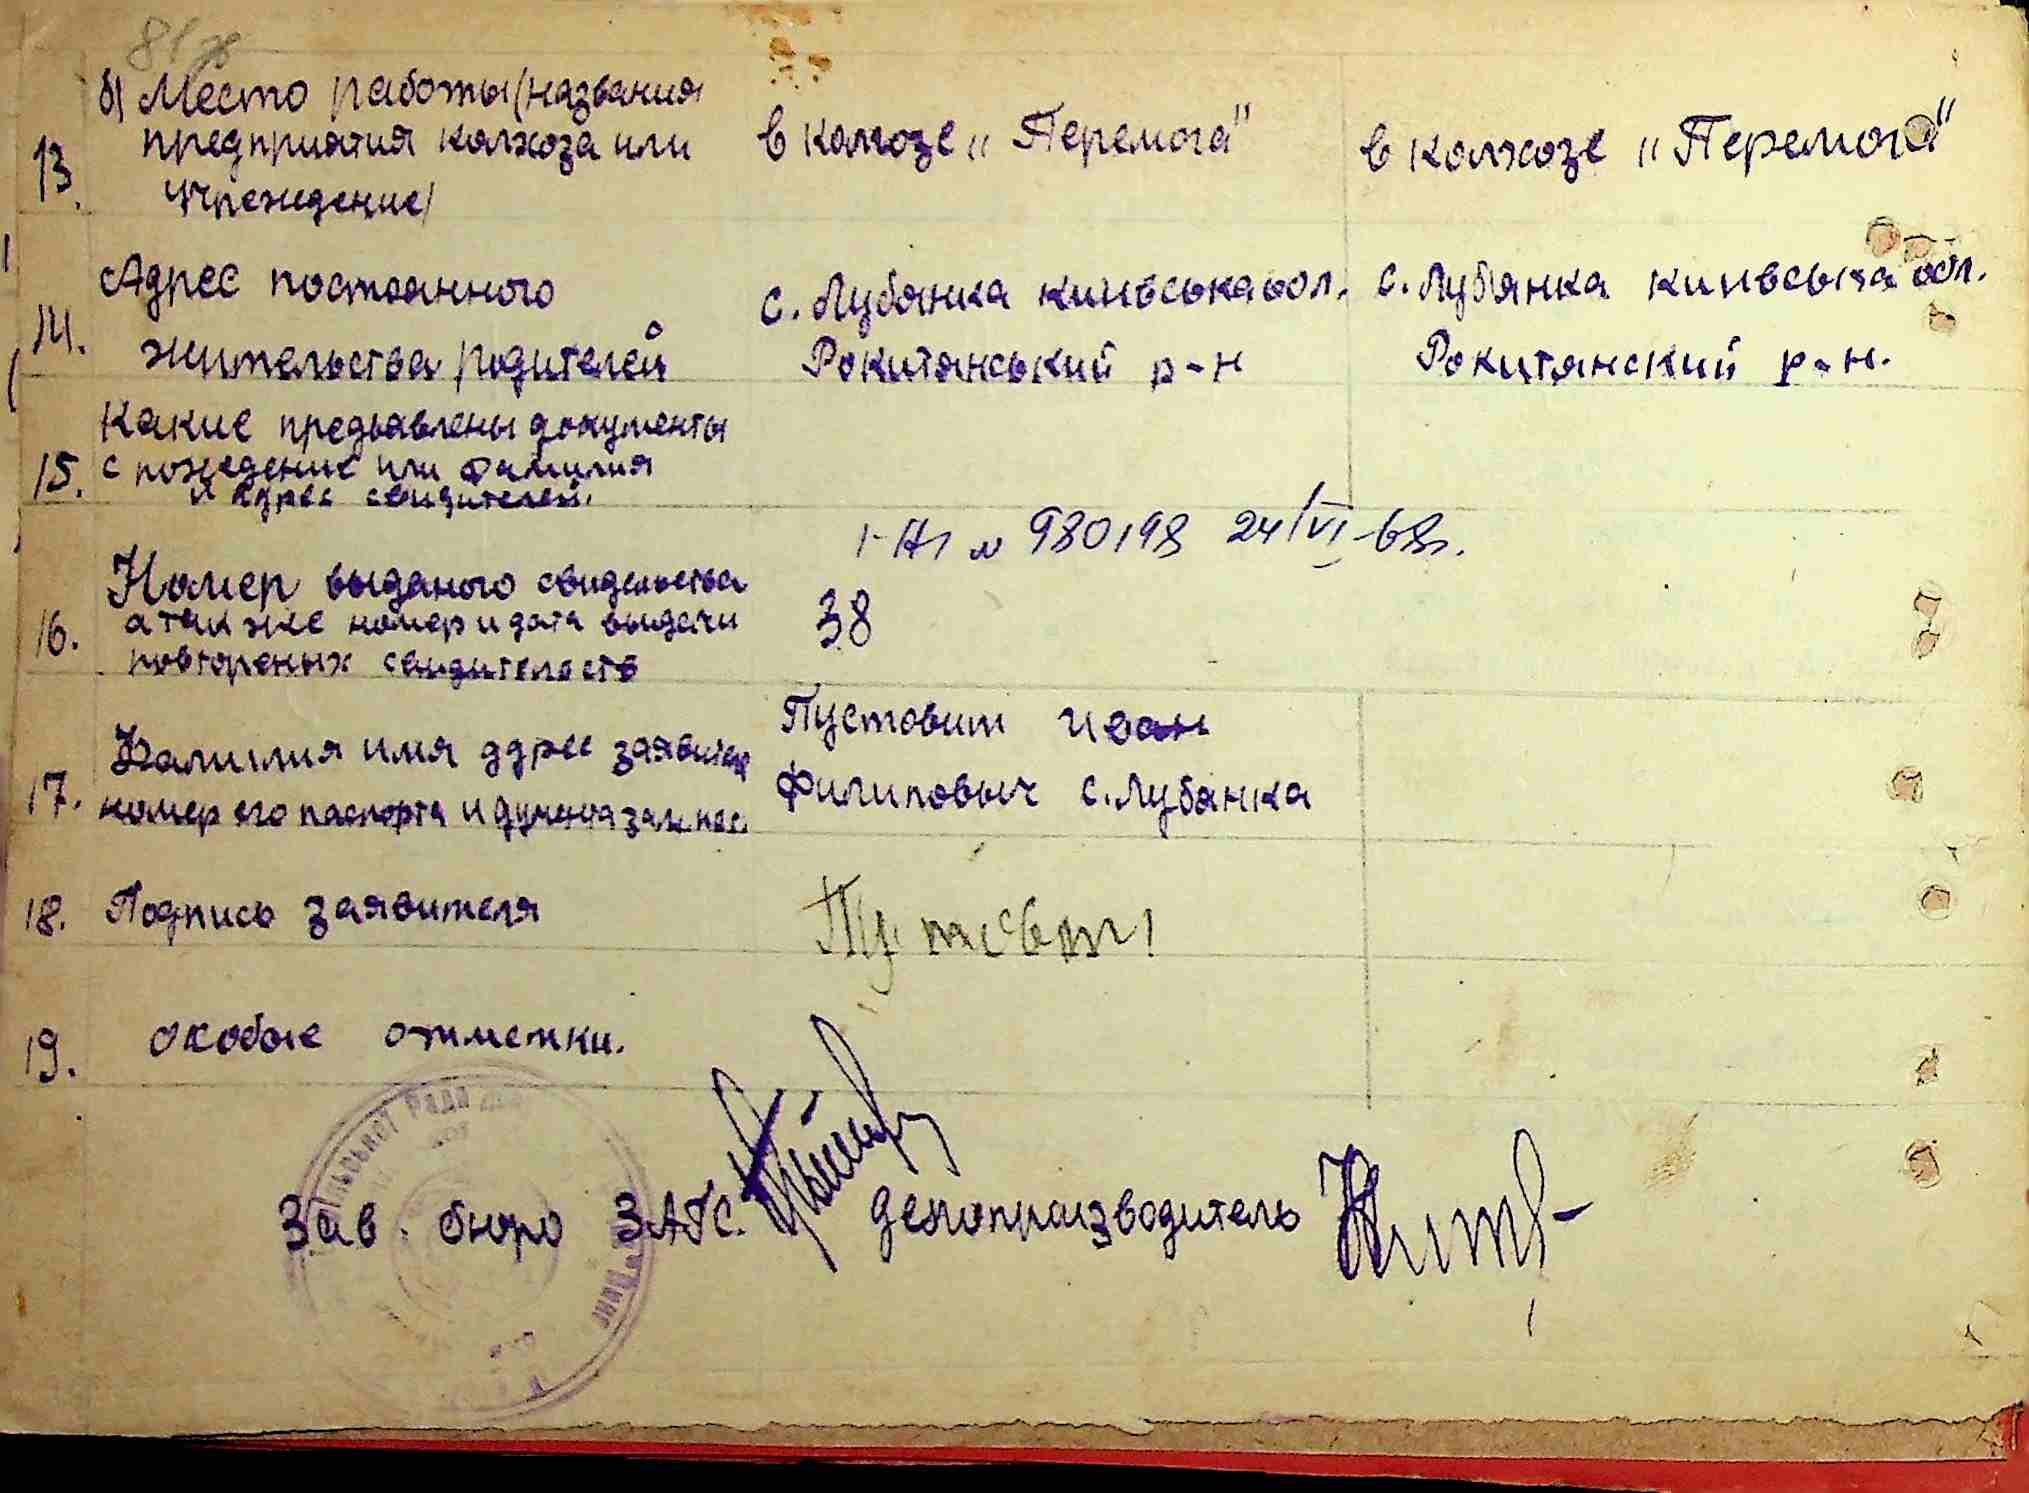 б) Место работы (названия
предприятия колхоза или
учреждение)
13.
в колхозе „Перемога"
в колхозе „Перемога"
Адрес постоянного
жительства родителей
14.
с. Лубянка киивська обл.
Рокитянський р-н
с. Лубянка киивська обл.
Рокитянский р-н.
Какие предьавлены документы
с рождение или фамилия
и адрес свидителей.
15.
I-АП № 980198 24/VI-68г.
Номер выданого свидельства
а так же номер и дата выдачи
повтореных свидительств
16.
38
Фамилия имя адрес заявителя
номер его паспорта и
17.
Пустовит Иван
Филиповыч с. Лубянка
18. Подпись заявителя
19. особые отметки.
Зав. бюро ЗАГС.
делопроизводитель